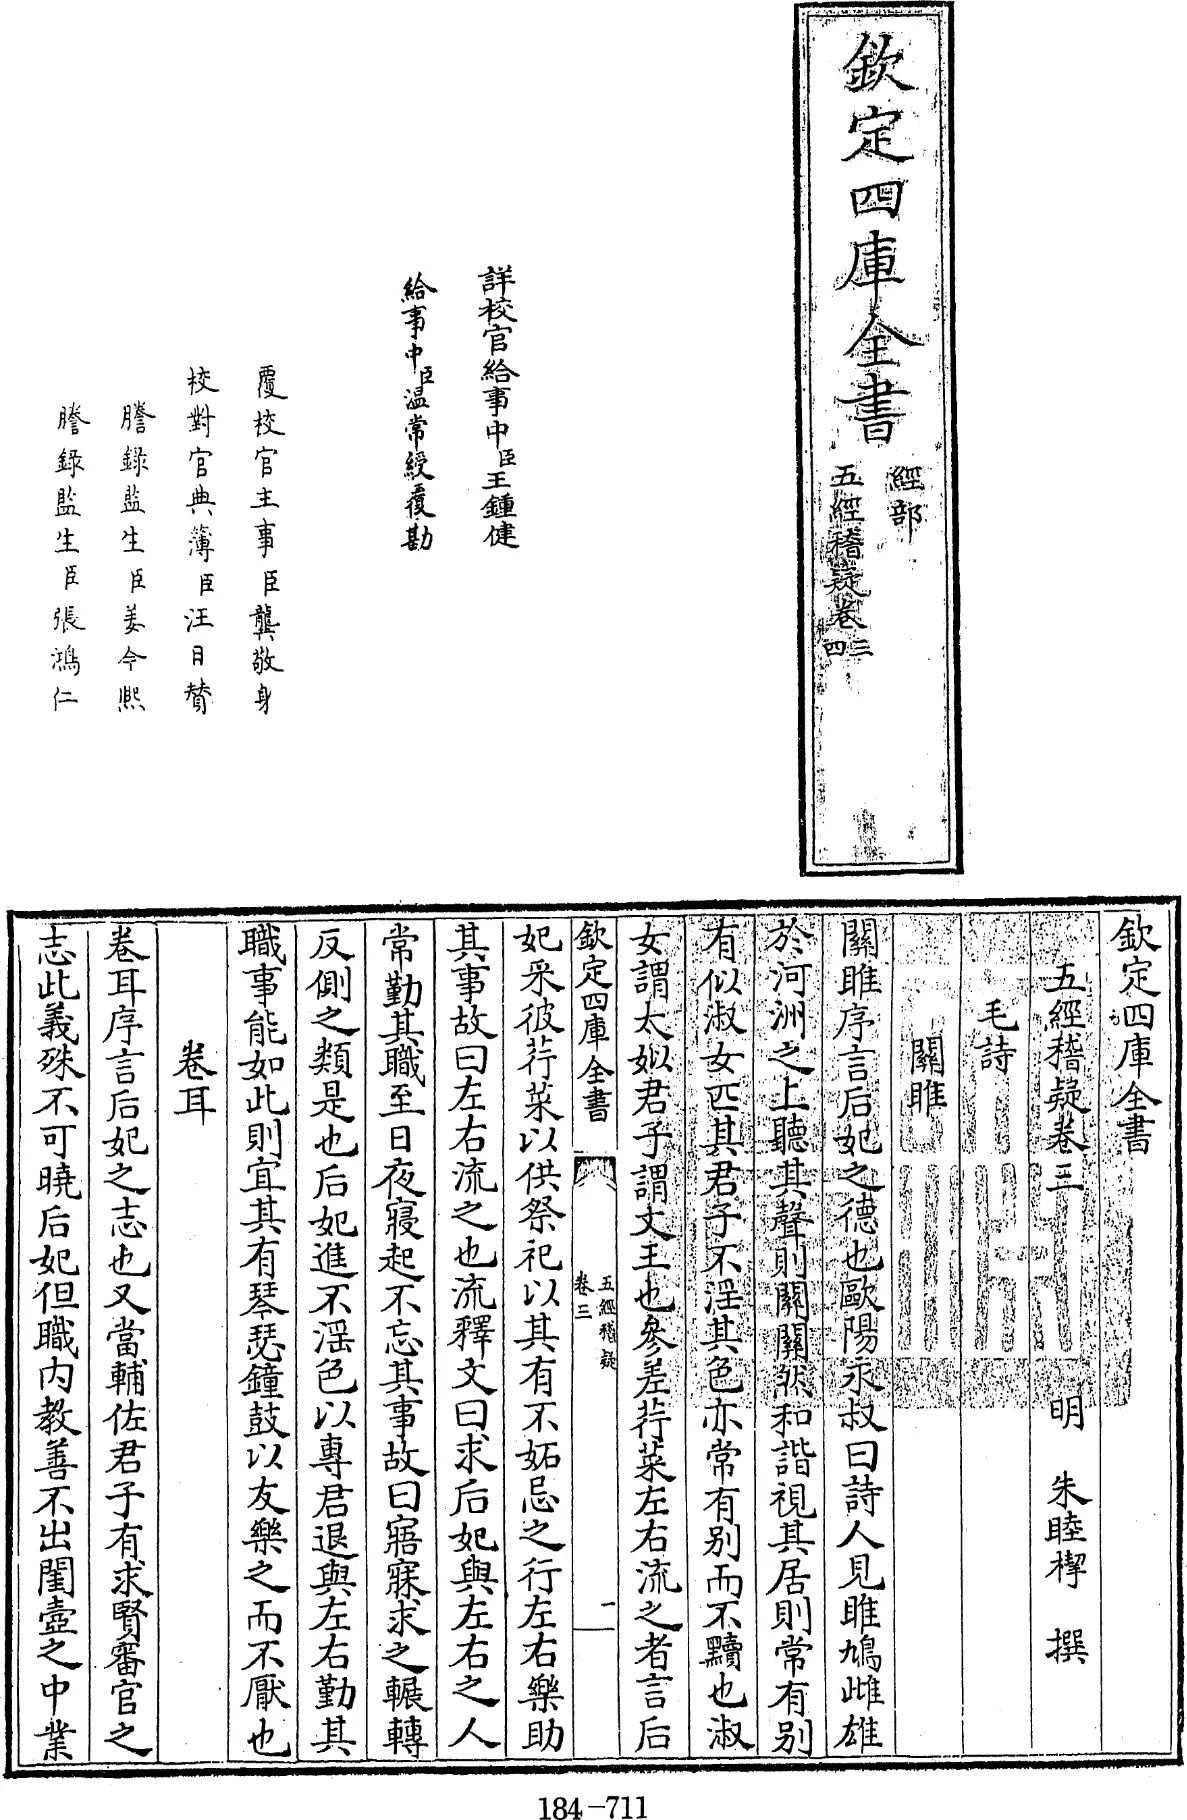 欽定四庫全書
經部
五經稽疑卷三四
詳校官給事中臣王鍾健
給事中臣温常綬覆勘
覆校官主事臣龔敬身
校對官典簿臣汪日贊
謄錄監生臣姜令熙
謄錄監生臣張鴻仁
欽定四庫全書
五經稽疑卷三
明 朱睦㮮 撰
毛詩
關雎
關雎序言后妃之德也歐陽永叔曰詩人見雎鳩雌雄
於河洲之上聽其聲則關關然和諧視其居則常有别
有似淑女匹其君子不淫其色亦常有别而不黷也淑
女謂太姒君子謂文王也參差荇菜左右流之者言后
欽定四庫全書
五經稽疑
卷三
一
妃采彼荇菜以供祭祀以其有不妬忌之行左右樂助
其事故曰左右流之也流釋文曰求后妃與左右之人
常勤其職至日夜寢起不忘其事故曰寤寐求之輾轉
反側之類是也后妃進不淫色以專君退與左右勤其
職事能如此則宜其有琴瑟鐘鼓以友樂之而不厭也
卷耳
卷耳序言后妃之志也又當輔佐君子有求賢審官之
志此義殊不可曉后妃但職内教善不出閨壼之中業
184-711